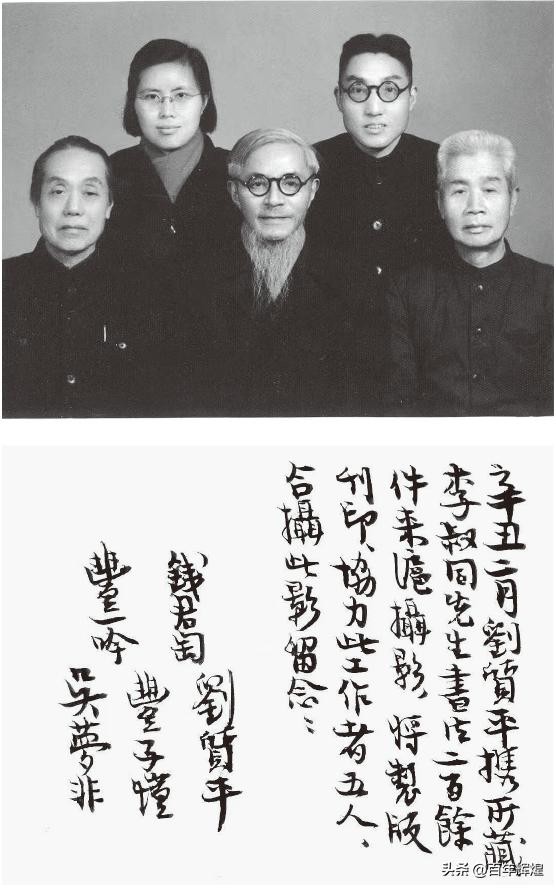 辛丑二月劉質平携所藏
李叔同先生書法二百餘
件来滬攝影、將製版
刊印、協力此工作者五人、
合攝此影留念：
劉質平
錢君匋
豐子愷
豐一吟
吳夢非
头条 @百年辉煌